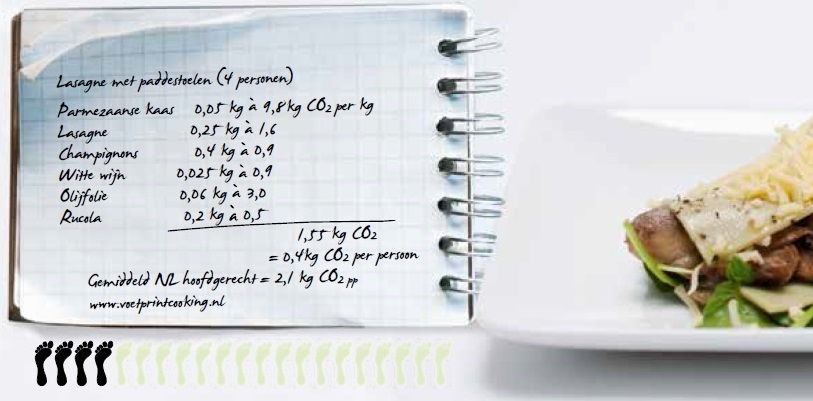 Lasagne met paddestoelen (4 personen)
Parmezaanse kaas 0,05 kg à 9,8 kg CO2 per kg
Lasagne 0,25 kg à 1,6
Champignons 0,4 kg à 0,9
Witte wijn 0,025 kg à 0,9
Olijfolie 0,06 kg à 3,0
Rucola 0,2 kg à 0,5
1,55 kg CO2
= 0,4 kg CO2 per persoon
Gemiddeld NL hoofdgerecht = 2,1 kg CO2 pp
www.voetprintcooking.nl